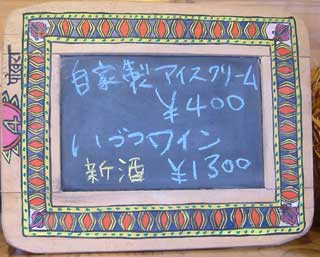 自家製アイスクリーム
¥400
いづつワイン
新酒 ¥1300